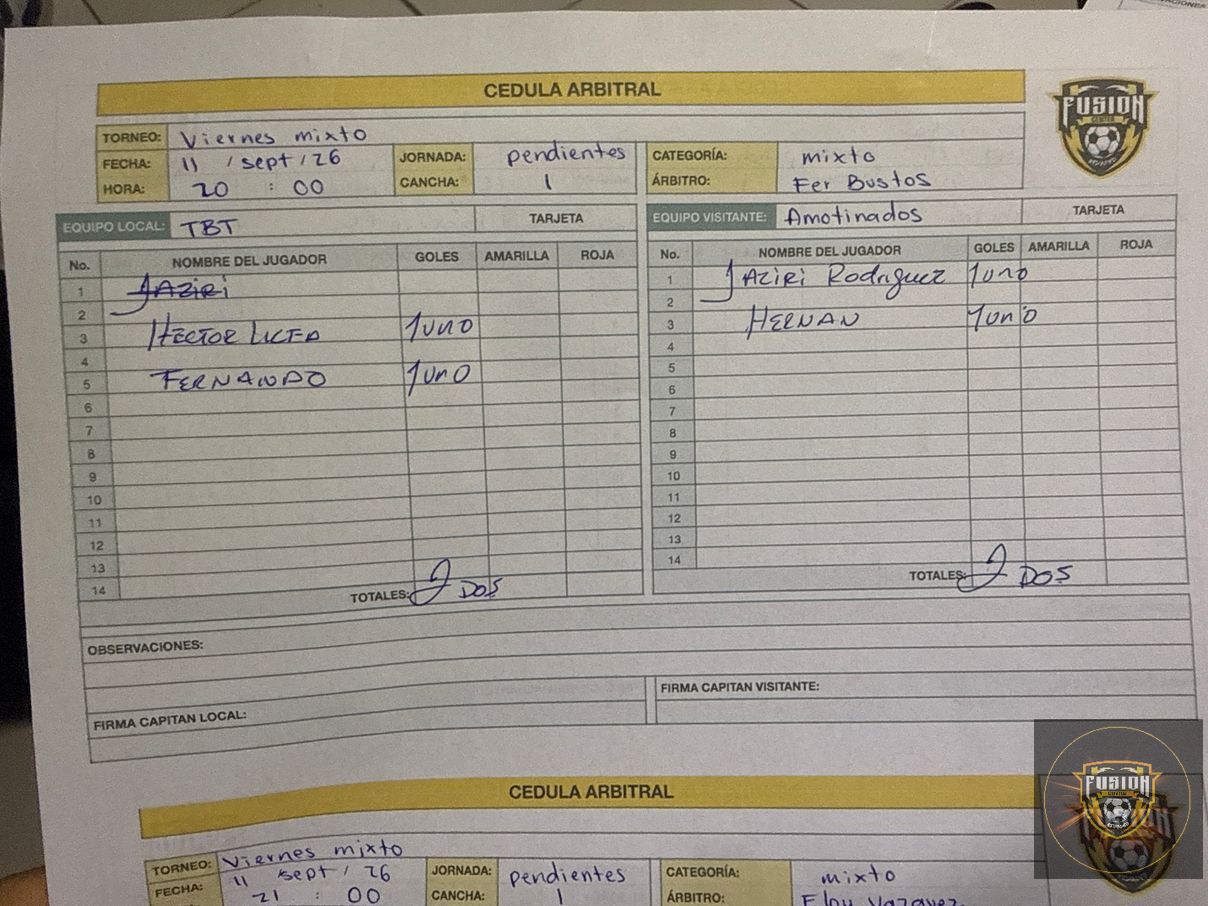 CEDULA ARBITRAL
FUSION
CENTER
TORNEO: Viernes mixto
FECHA: 11 / sept / 26 JORNADA: pendientes CATEGORÍA: mixto
HORA: 20 : 00 CANCHA: 1 ÁRBITRO: Fer Bustos
EQUIPO LOCAL: TBT TARJETA EQUIPO VISITANTE: Amotinados TARJETA
No. NOMBRE DEL JUGADOR GOLES AMARILLA ROJA No. NOMBRE DEL JUGADOR GOLES AMARILLA ROJA
1 JAZIRI 1 JAZIRI Rodriguez 1uno
2 2
3 HECTOR LICEA 1uno 3 HERNAN 1uno
4 4
5 FERNANDO 1uno 5
6 6
7 7
8 8
9 9
10 10
11 11
12 12
13 13
14 14
TOTALES: 2 DOS TOTALES: 2 DOS
OBSERVACIONES:
FIRMA CAPITAN LOCAL: FIRMA CAPITAN VISITANTE:
CEDULA ARBITRAL
TORNEO: Viernes mixto
FECHA: 11 sept / 26 JORNADA: pendientes CATEGORÍA: mixto
21 : 00 CANCHA: 1 ÁRBITRO: Eloy Vazquez
FUSION
CENTER